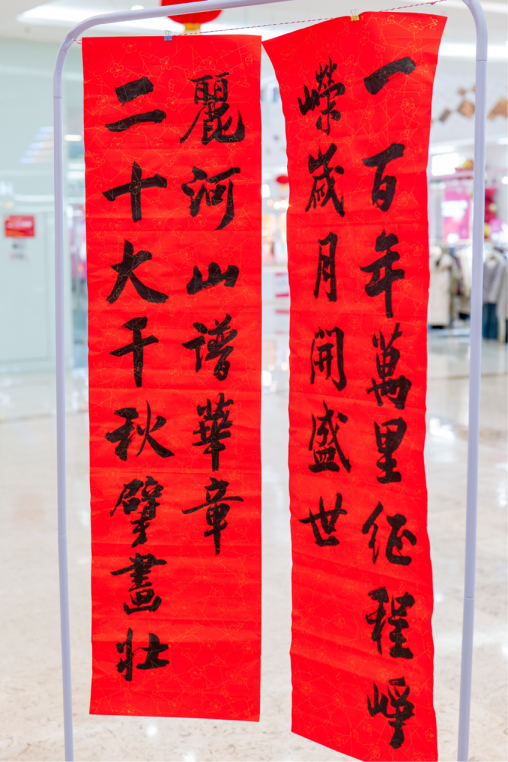 一百年萬里征程崢
嶸歲月開盛世
二十大千秋擘畫壯
麗河山譜華章